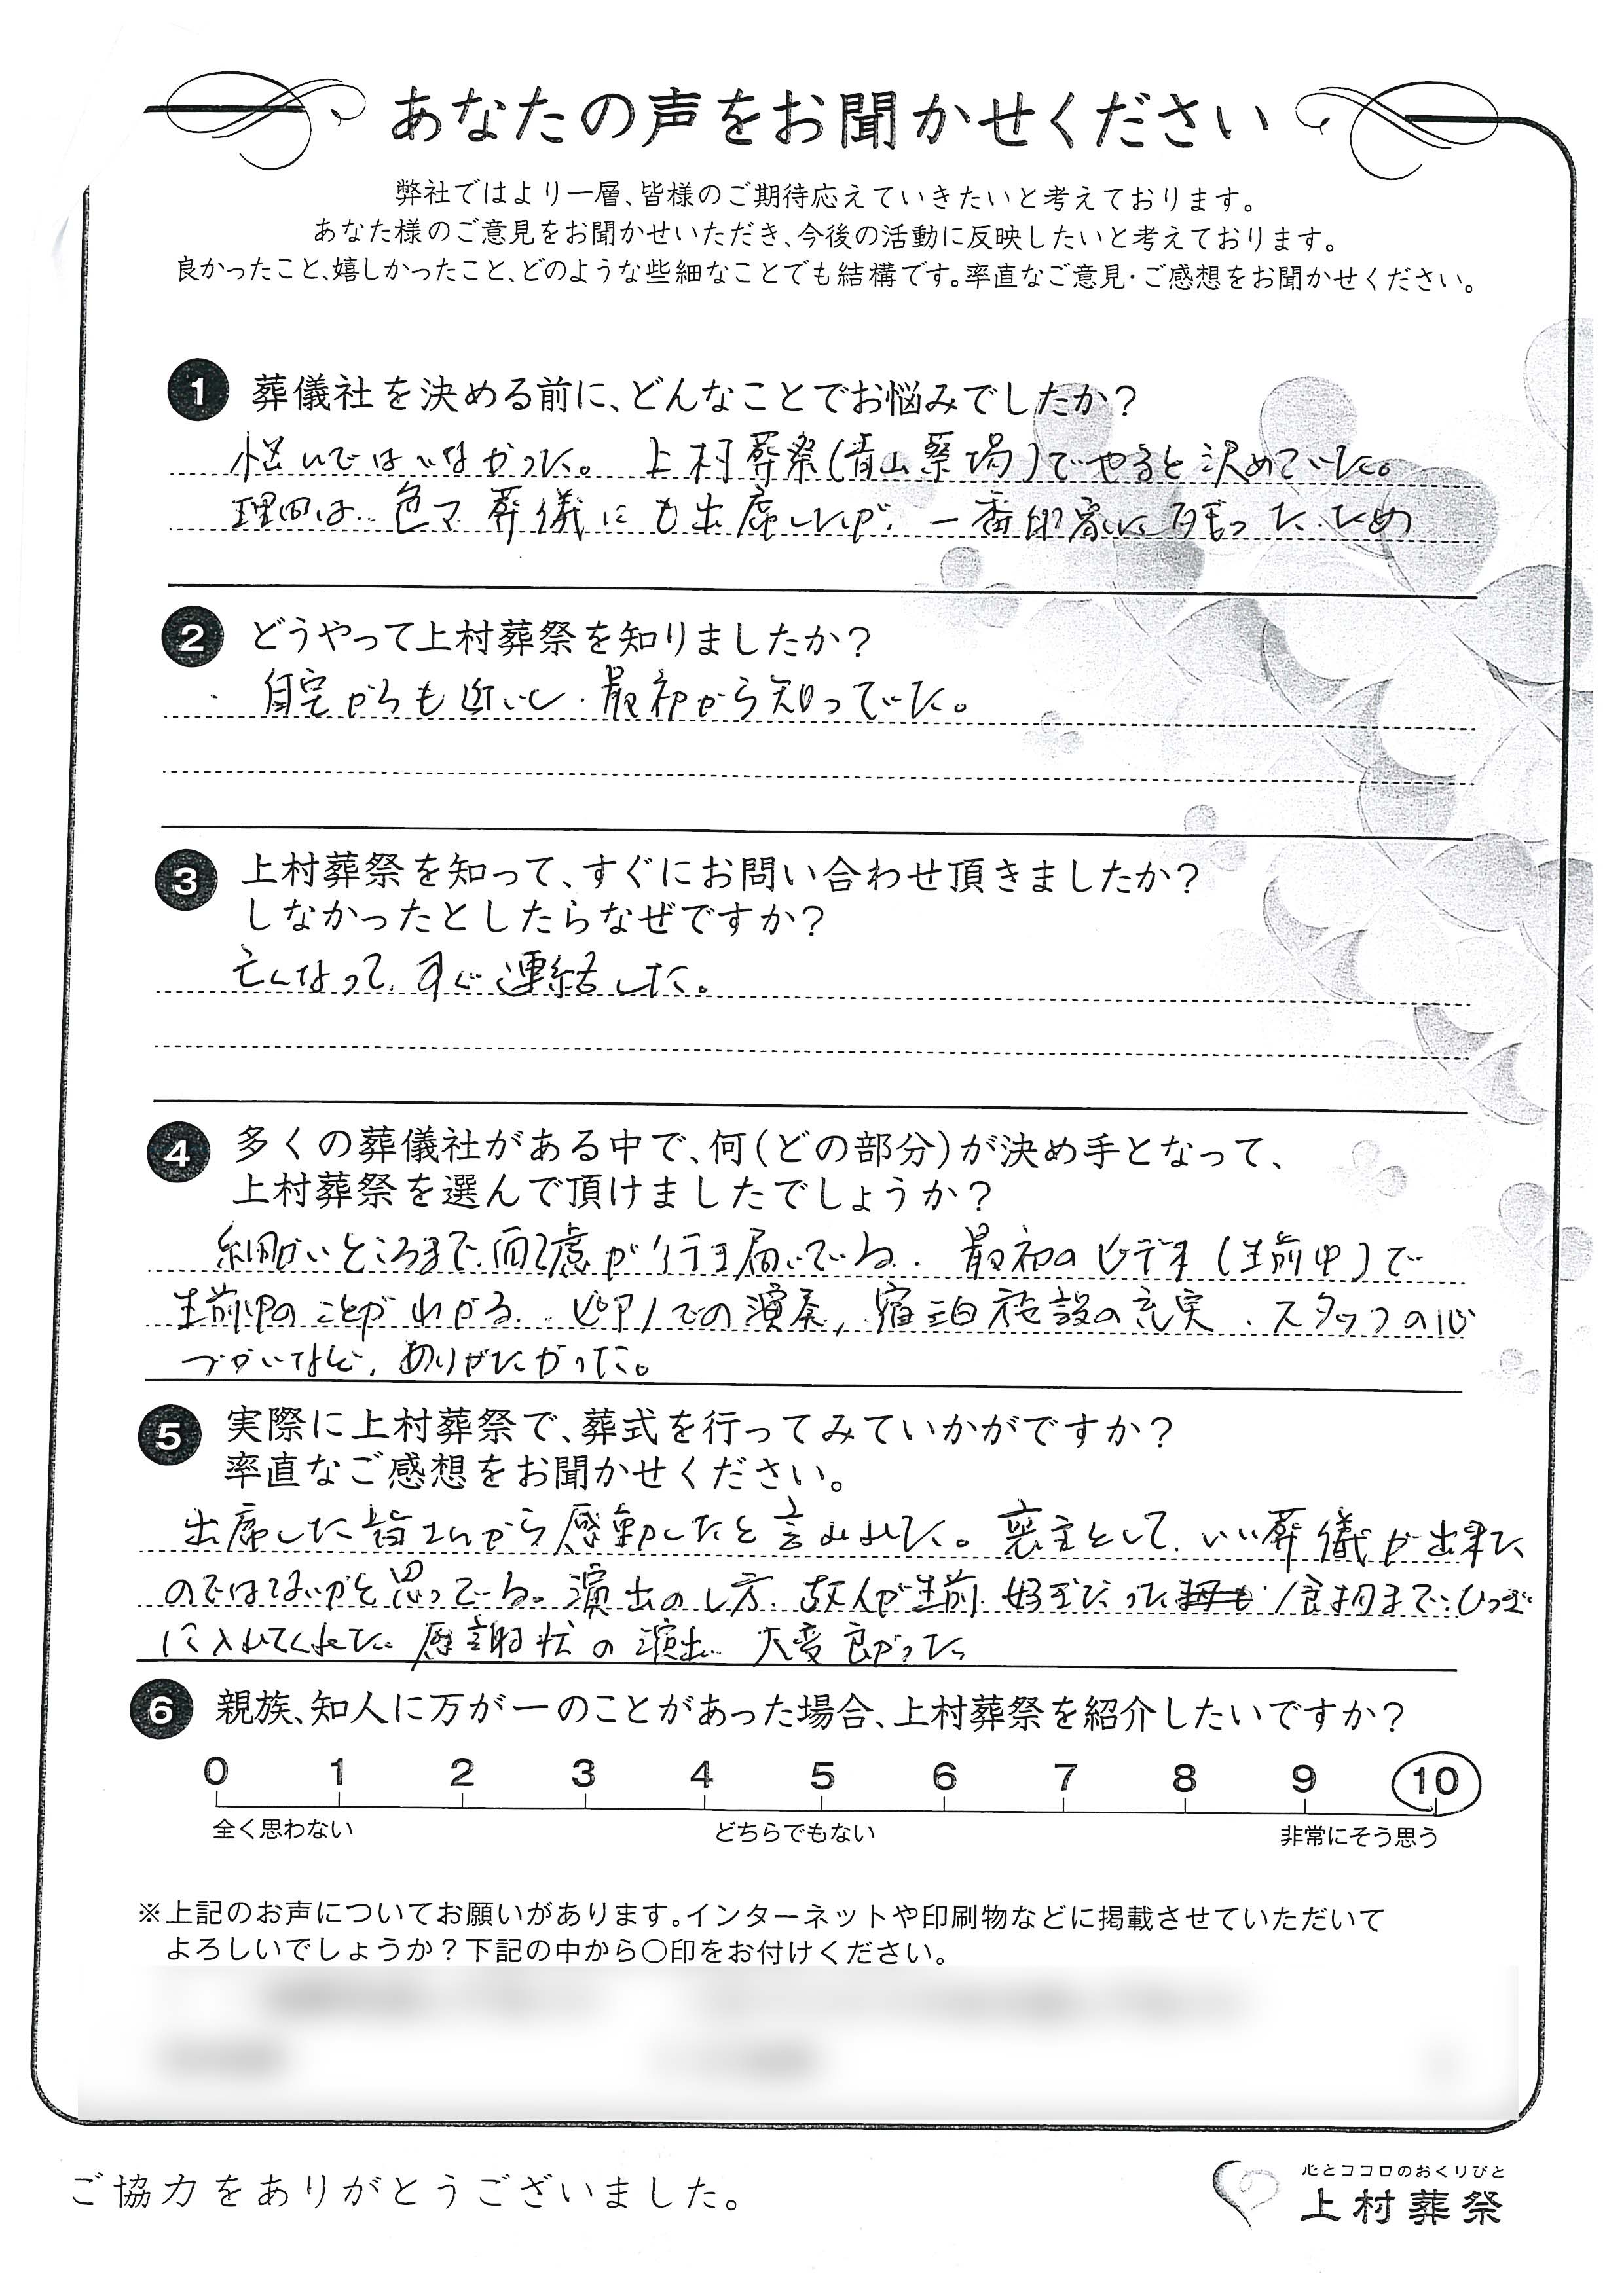 あなたの声をお聞かせください
弊社ではより一層、皆様のご期待応えていきたいと考えております。
あなた様のご意見をお聞かせいただき、今後の活動に反映したいと考えております。
良かったこと、嬉しかったこと、どのような些細なことでも結構です。率直なご意見・ご感想をお聞かせください。
1 葬儀社を決める前に、どんなことでお悩みでしたか?
悩んではいなかった。上村葬祭(青山祭場)でやると決めていた。
理由は、色々葬儀にも出席したが、一番印象に残ったため
2 どうやって上村葬祭を知りましたか?
自宅からも近いし、最初から知っていた。
3 上村葬祭を知って、すぐにお問い合わせ頂きましたか?
しなかったとしたらなぜですか?
亡くなって、すぐ連絡した。
4 多くの葬儀社がある中で、何(どの部分)が決め手となって、
上村葬祭を選んで頂けましたでしょうか?
細かいところまで、配慮が行き届いている。最初のビデオ(生前中)で
生前中のことがわかる。ピアノでの演奏、宿泊施設の充実、スタッフの心
づかいなど、ありがたかった。
5 実際に上村葬祭で、葬式を行ってみていかがですか?
率直なご感想をお聞かせください。
出席した皆さんから感動したと言われた。喪主として、いい葬儀が出来た
のではないかと思っている。演出のし方、故人が生前、好きだった 食物まで、ひつぎ
に入れてくれた。感謝状の演出、大変良かった
6 親族、知人に万が一のことがあった場合、上村葬祭を紹介したいですか?
0 1 2 3 4 5 6 7 8 9 10
全く思わない どちらでもない 非常にそう思う
※上記のお声についてお願いがあります。インターネットや印刷物などに掲載させていただいて
よろしいでしょうか?下記の中から○印をお付けください。
ご協力をありがとうございました。
心とココロのおくりびと
上村葬祭